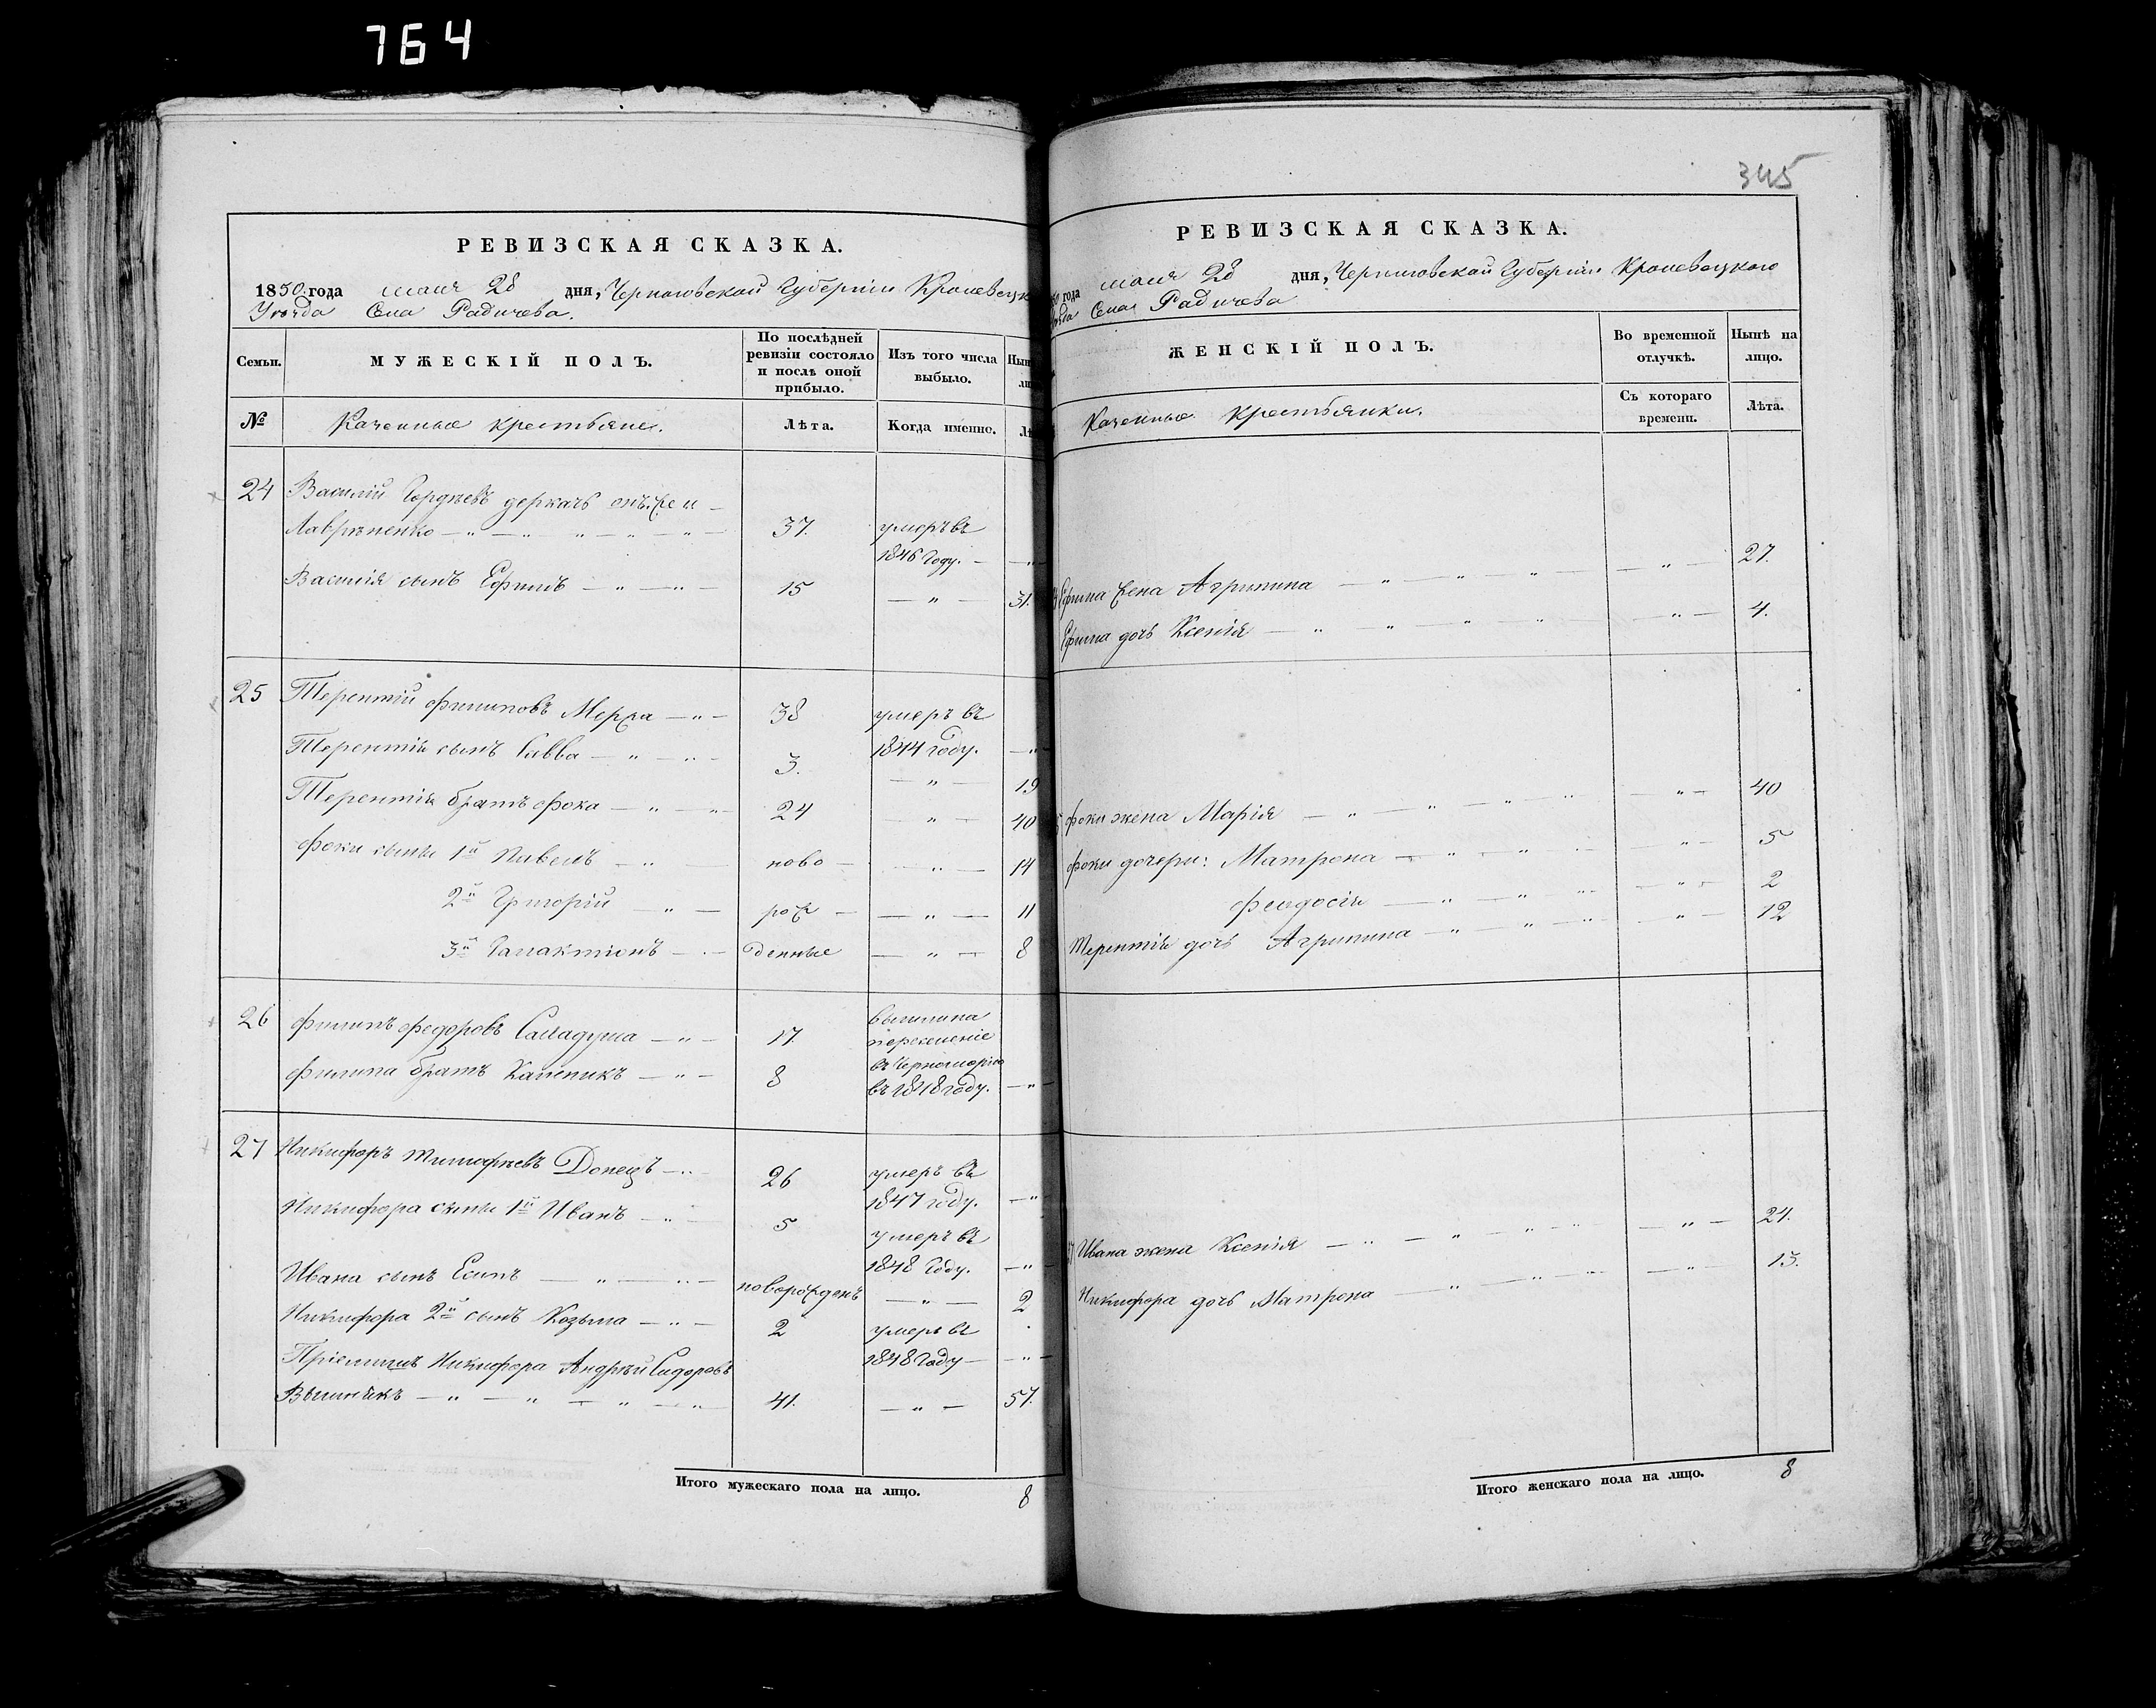 764
РЕВИЗСКАЯ СКАЗКА.
1850 года маія 28 дня, Черниговской Губерніи Кролевецк
Уѣзда Села Радичева.
Семьи.
МУЖЕСКІЙ ПОЛЪ.
По послѣдней ревизіи состояло и послѣ оной прибыло.
Изъ того числа выбыло.
№
Казенные крестьяне.
Лѣта.
Когда именно.
24 Василій Гордѣевъ деркачъ
Лаврѣненко — „ — „ „ — „ — „ — 37. умеръ въ
1846 Году. — „
Василія сынъ Ефимъ — „ — „ — 15 — „ — 31.
25 Терентій Филиповъ Мерза — „ — 38 умеръ въ
1844 году. — „
Терентія сынъ Савва — „ — „ — 3. — „ — 19
Терентія братъ Фока — „ — „ — 24 — „ — 40
Фоки сыны 1й Павелъ — „ — ново — — „ — 14
2й Григорій „ — рож — — „ — 11
3й Галактіонъ — „ — денные — „ — 8
26 Филипъ Федоровъ Саладуха — „ — 17. вышли на
переселеніе
Филипа братъ Каленикъ — „ — 8 въ Черноморію
въ 1848 году. — „ —
27 Никифоръ Тимофѣевъ Донецъ — „ 26 умеръ въ
1847 году. — „
Никифора сыны 1й Иванъ — „ — 5 умеръ въ
1848 Году. — „ —
Ивана сынъ Есипъ — „ — „ — новорожденъ — „ — 2
Никифора 2й сынъ Козьма — „ — 2 умеръ въ
1848 Году — — „ —
Пріемышъ Никифора Андрѣй Сидоровъ
— „ — „ — „ — „ 41. — „ — 57.
Итого мужескаго пола на лицо. 8
345
РЕВИЗСКАЯ СКАЗКА.
года маія 28 дня, Черниговской Губерніи Кролевецкаго
Села Радичева
ЖЕНСКІЙ ПОЛЪ.
Во временной отлучкѣ.
Нынѣ на лицо.
Казенные крестьянки.
Съ котораго времени.
Лѣта.
Ефима жена Агрипина — „ — „ „ — — „ — 27.
Ефима дочь Ксенія — „ „ — „ „ — „ — 4.
Фоки жена Марія — „ — „ — „ „ — „ — 40
Фоки дочери: Матрона — „ — „ — „ — 5
Феодосія — „ — „ — „ — 2
Терентія дочь Агрипина — „ — „ — „ „ — 12
Ивана жена Ксенія — „ — „ — „ — „ — 24.
Никифора дочь Матрона — „ — „ — „ — 13.
Итого женскаго пола на лицо. 8